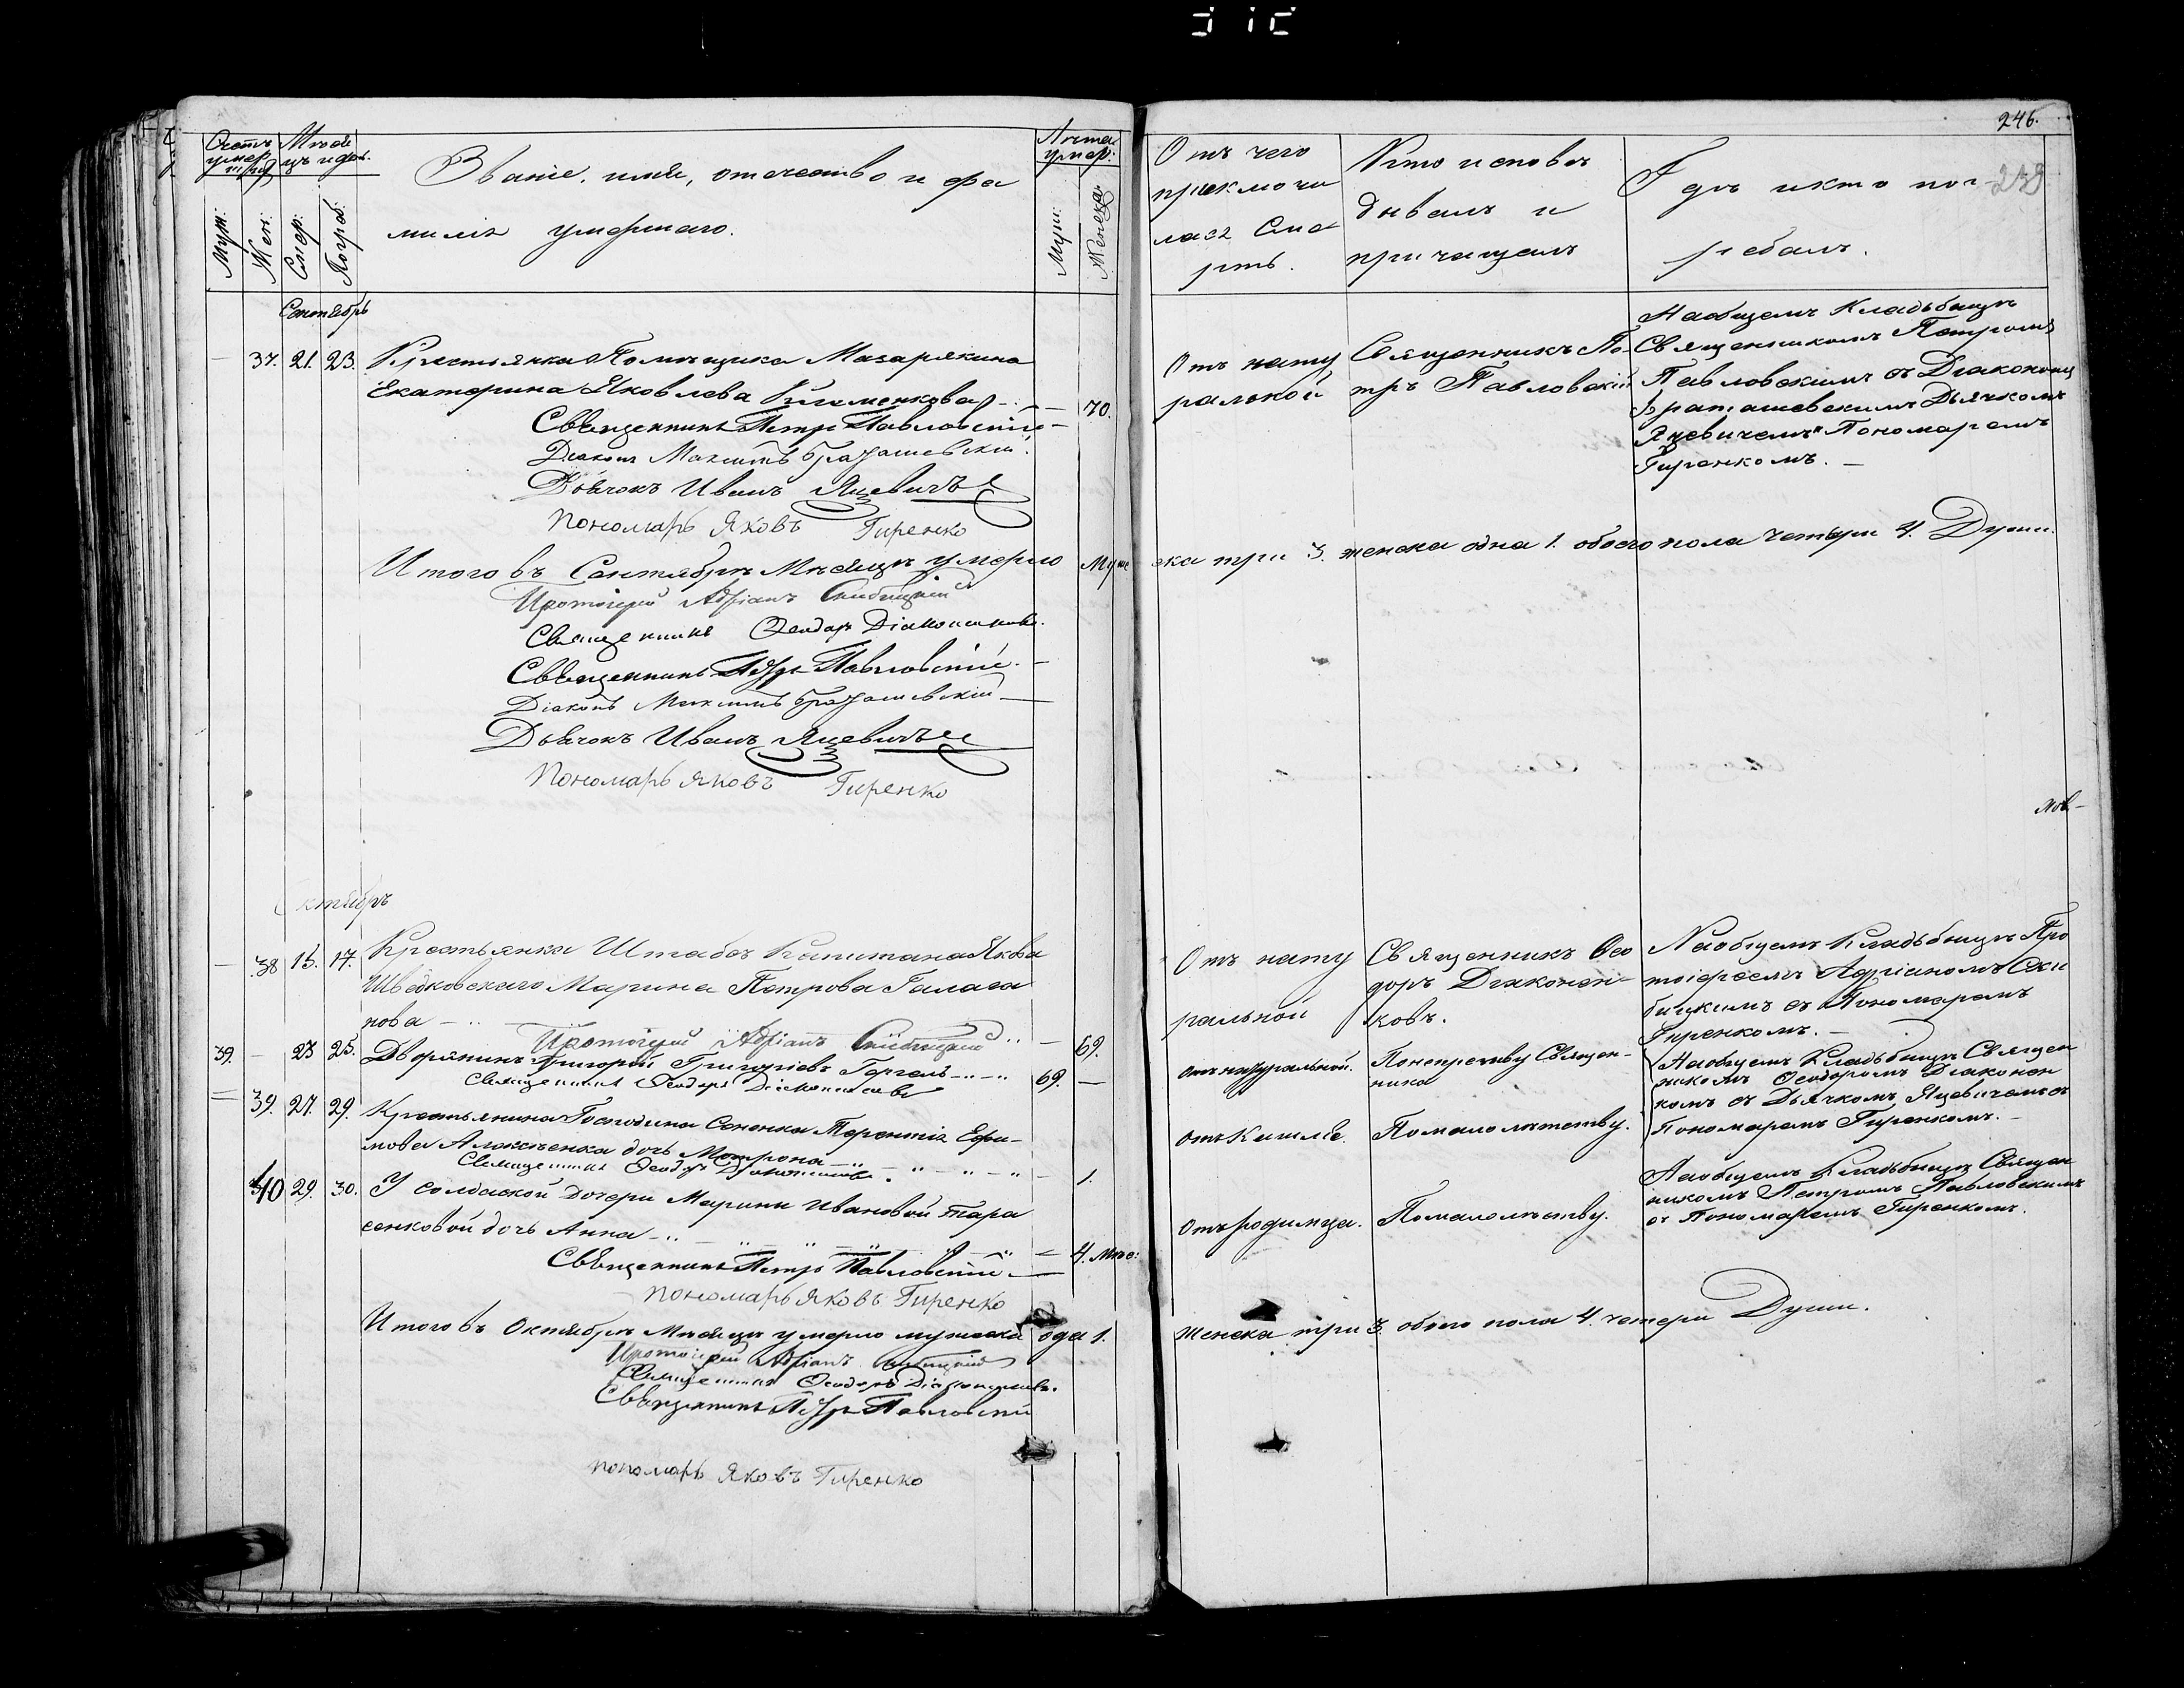 246.
239
Счетъ умер:
Мѣсяцъ и день.
Муж:
Жен:
Смер:
Погреб:
Званіе, имя, отечество и фа
милія умершаго.
Лѣта умер:
Муж:
Женска:
Отъ чего
приключи
лась Сме
рть.
Кто исповѣ
дывалъ и
причащалъ
Гдѣ и кто пог
ребалъ.
Сентябрь
— 37. 21. 23. Крестьянка Помѣщика Мазаракина
Екатерина Яковлева — 70.
Священникъ Петръ Павловскій
Діаконъ Максимъ
Дьячокъ Иванъ Яцевичъ
Пономарь Яковъ Гиренко
Отъ нату
ральной
Священникъ Пе
тръ Павловскій
На общемъ Кладьбищѣ
Священникомъ Петромъ
Павловскимъ съ Діакономъ
Дьячкомъ
Яцевичемъ и Пономаремъ
Гиренкомъ. —
Итого въ Сентябрѣ Мѣсяцѣ умерло Муже ска три 3. женска одна 1. обоего пола четыри 4. Души.
Протоіерей Адріанъ Скибицкій
Священникъ Ѳеодоръ Діаконенковъ.
Священникъ Петръ Павловскій. —
Діаконъ Максимъ
Дьячокъ Иванъ Яцевичъ
Пономарь Яковъ Гиренко
Октябрь
— 38 15. 17. Крестьянка Штабсъ Капитана Якова
Шведковскаго Марина Петрова Галага
нова — 69.
Протоіерей Адріанъ Скибицкій
Отъ нату
ральной
Священникъ Ѳео
доръ Діаконен
ковъ.
На общемъ Кладьбищѣ Про
тоіереемъ Адріаномъ Ски
бицкимъ съ Пономаремъ
Гиренкомъ. —
39. — 23 25. Дворянинъ Григорій Григоріевъ 69. —
Священникъ Ѳеодоръ Діаконенковъ
Отъ натуральной.
Священ
ника
На общемъ Кладьбищѣ Священ
никомъ Ѳеодоромъ Діаконен
комъ съ Дьячкомъ Яцевичемъ съ
Пономаремъ Гиренкомъ. —
39. 27. 29. Крестьянина Господина Сененка Терентія Ефи
мова дочь Мотрона — 1.
Священникъ Ѳеодоръ Діаконенковъ.
Отъ Кашля.
По малолѣтству.
40 29. 30. У солдатской дочери Марины Ивановой Тара
сенковой дочь Анна — 4. мѣс:
Священникъ Петръ Павловскій. —
Пономарь Яковъ Гиренко
Отъ родимца.
По малолѣтству.
На общемъ Кладьбищѣ Священ
никомъ Петромъ Павловскимъ
съ Пономаремъ Гиренкомъ.
Итого въ Октябрѣ Мѣсяцѣ умерло мужеска 1. женска три 3. обоего пола 4. четыри Души.
Протоіерей Адріанъ Скибицкій
Священникъ Ѳеодоръ Діаконенковъ.
Священникъ Петръ Павловскій
Пономарь Яковъ Гиренко